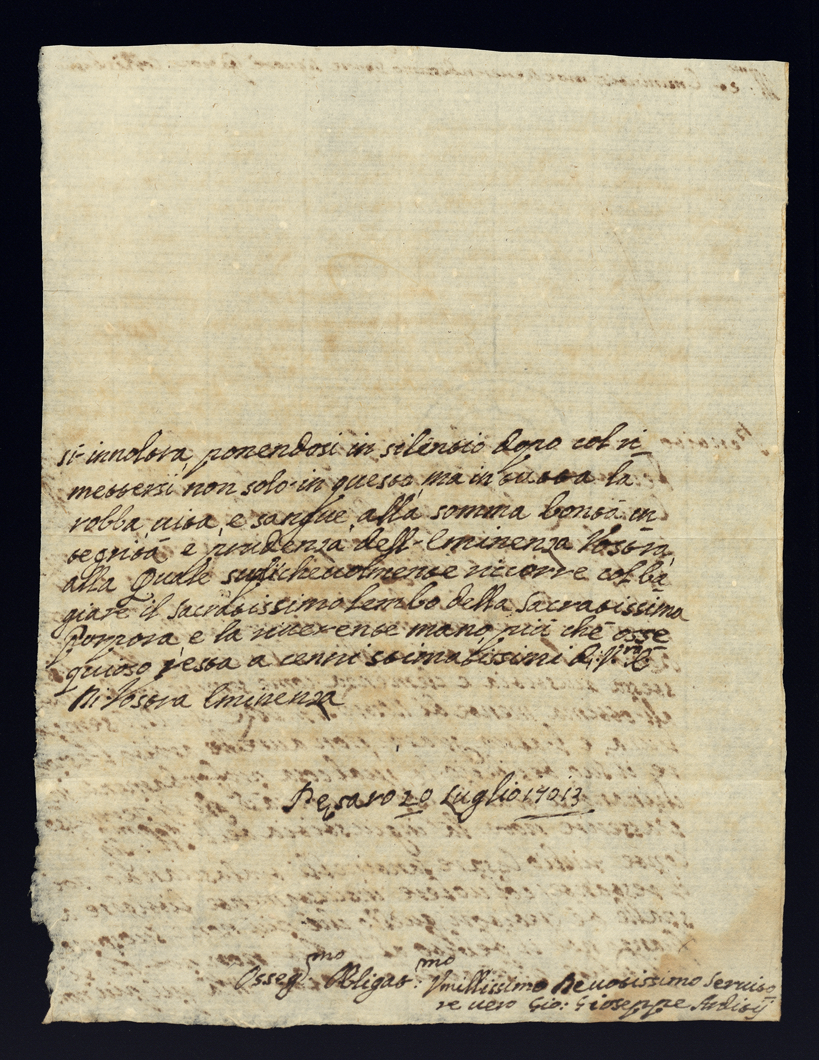 si innoltra, ponendosi in silentio dopo col ri-
mettersi non solo in questo, ma in tutta la
robba, vita, e sangue alla somma bontà, in
tegrità e prudenza dell'Eminenza Vostra,
alla Quale suiscievolmente ricorre col ba-
giare il Sacratissimo lembo della Sacratissima
Porpora e la riverente mano, più che osse
quioso resta a cenni stimatissimi
Di Vostra Eminenza
Pesaro 20 Luglio 1701
Osseq.mo Obligat.mo Vmillissimo Devotissimo Servito
re vero Gio: Gioseppe Arditij